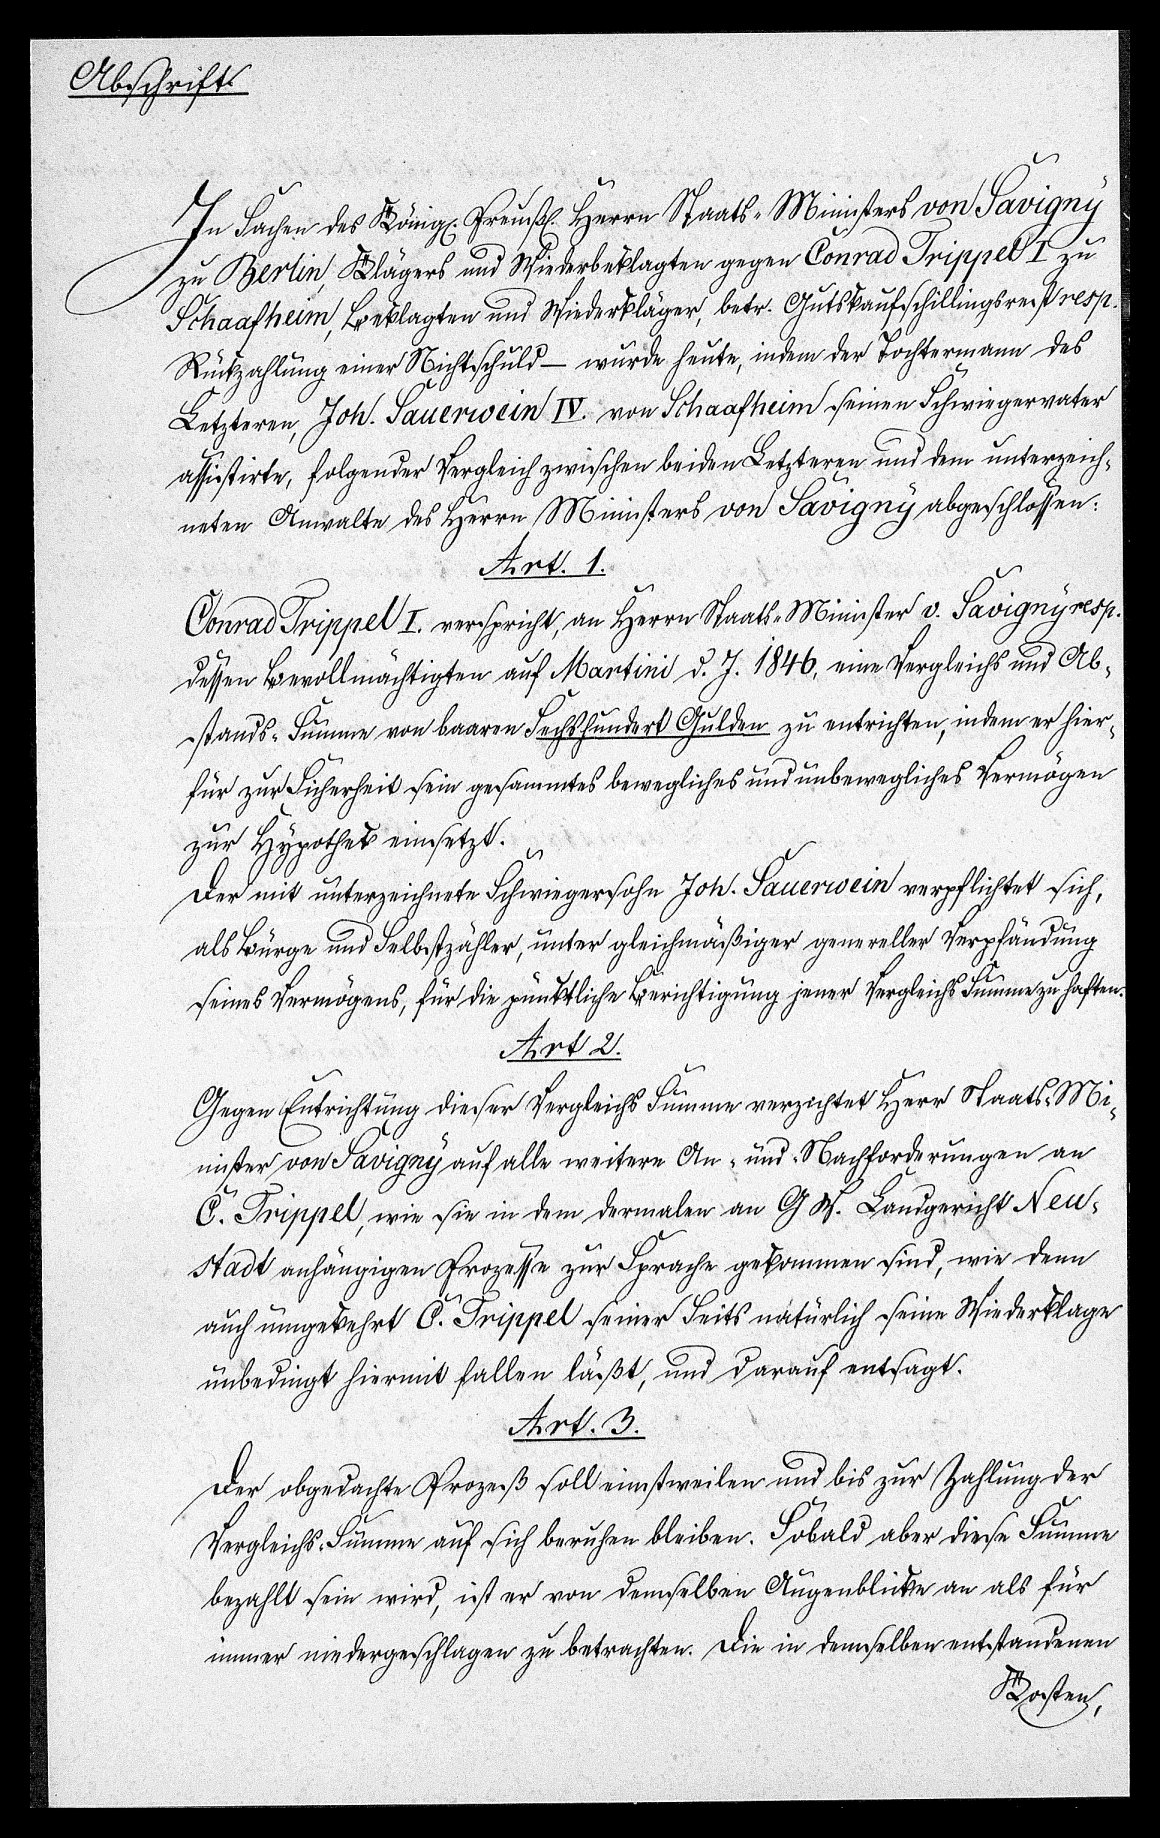 Abschrift
In Sachen des Königl. Preußl. Herrn Staats-Ministers von Savigny
zu Berlin, Klägers und Wiederbeklagten gegen Conrad Trippel I zu
Schaafheim, Beklagten und Wiederkläger, betr. Gutskaufschillingsrest resp.
Rückzahlung einer Nichtschuld – wurde heute, indem der Tochtermann des
Letzteren, Joh. Sauerwein IV. von Schaafheim seinen Schwiegervater
assistirte, folgender Vergleich zwischen beiden Letzteren und dem unterzeich-
neten Anwalte des Herrn Ministers von Savigny abgeschlossen:
Art. 1.
Conrad Trippel I. verspricht, an Herrn Staats-Minister v. Savigny resp.
dessen Bevollmächtigten auf Martini d. J. 1846, eine Vergleichs und Ab-
stands-Summe von baaren Sechshundert Gulden zu entrichten, indem er hier-
für zur Sicherheit sein gesammtes bewegliches und unbewegliches Vermögen
zur Hypothek einsetzt.
Der mit unterzeichnete Schwiegersohn Joh. Sauerwein verpflichtet sich,
als Bürge und Selbstzähler, unter gleichmäßiger genereller Verpfändung
seines Vermögens, für die pünktliche Berichtigung jener Vergleichs Summe zu haften.
Art 2.
Gegen Entrichtung dieser Vergleichs Summe verzichtet Herr Staats-Mi-
nister von Savigny auf alle weitere An- und Nachforderungen an
C. Trippel, wie sie in dem dermalen an G H. Landgericht Neu-
stadt anhängigen Prozesse zur Sprache gekommen sind, wie denn
auch umgekehrt C. Trippel seiner Seits natürlich seine Wiederklage
unbedingt hiermit fallen läßt, und darauf entsagt.
Art. 3.
Der obgedachte Prozeß soll einstweilen und bis zur Zahlung der
Vergleichs-Summe auf sich beruhen bleiben. Sobald aber diese Summe
bezahlt sein wird, ist er von demselben Augenblicke an als für
immer niedergeschlagen zu betrachten. Die in demselben entstandenen
Kosten,